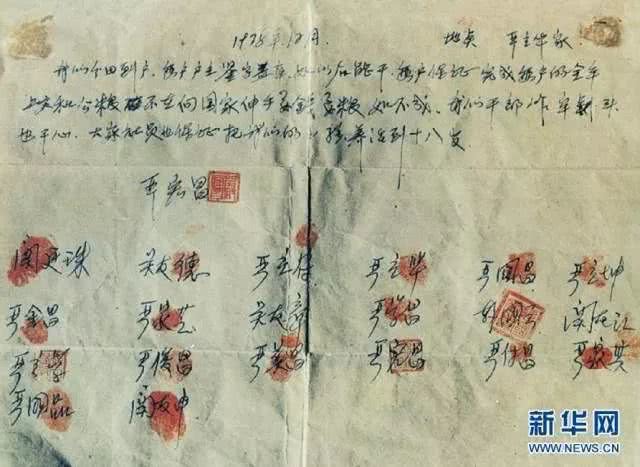 1978年12月. 地点 严立华家.
我们分田到户,每户户主签字盖章,如以后能干,每户保证完成每户的全年
上交和公粮 不在向国家伸手要钱要粮,如不成,我们干部作牢刹头
也干心,大家社员也保证把我们的小孩养活到十八岁
严宏昌
关廷珠 关友德 严立符 严立华 严国昌 严立坤
严金昌 严家芝 关友章 严学昌 韩国云 关友江
严立学 严俊昌 严美昌 严宏昌 严付昌 严家其
严国品 关友申
新华网
WWW.NEWS.CN